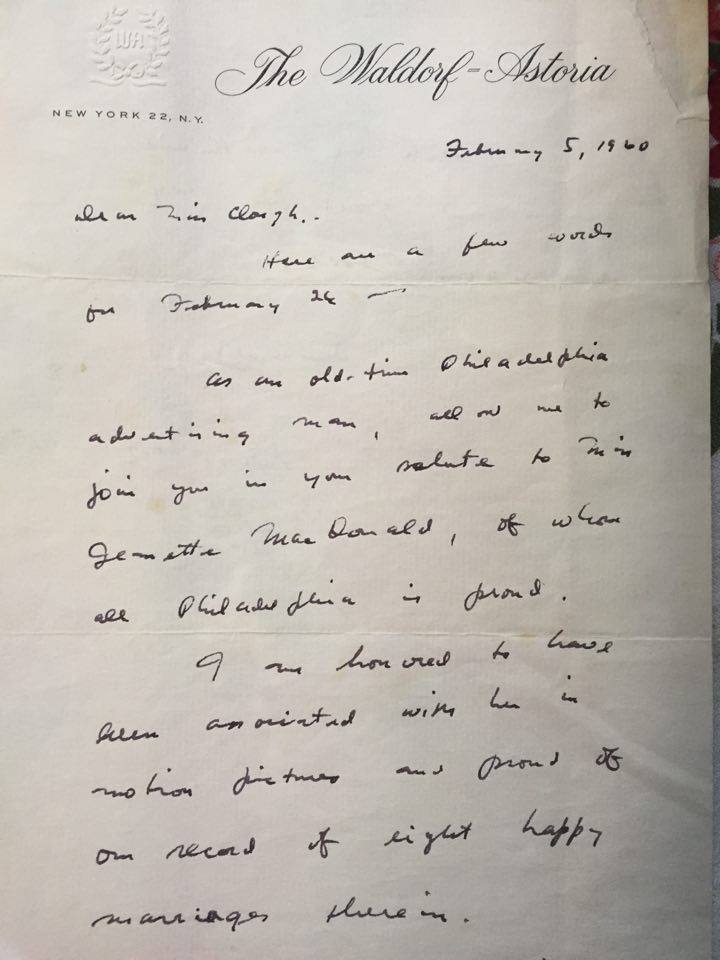 WA
The Waldorf=Astoria
NEW YORK 22, N.Y.
February 5, 1960
Dear Miss Clough,.
Here are a few words
for February 26 —
As an old-time Philadelphia
advertising man, allow me to
join you in your salute to Miss
Jeanette MacDonald, of whom
all Philadelphia is proud.
I am honored to have
been associated with her in
motion pictures and proud of
our record of eight happy
marriages therein.